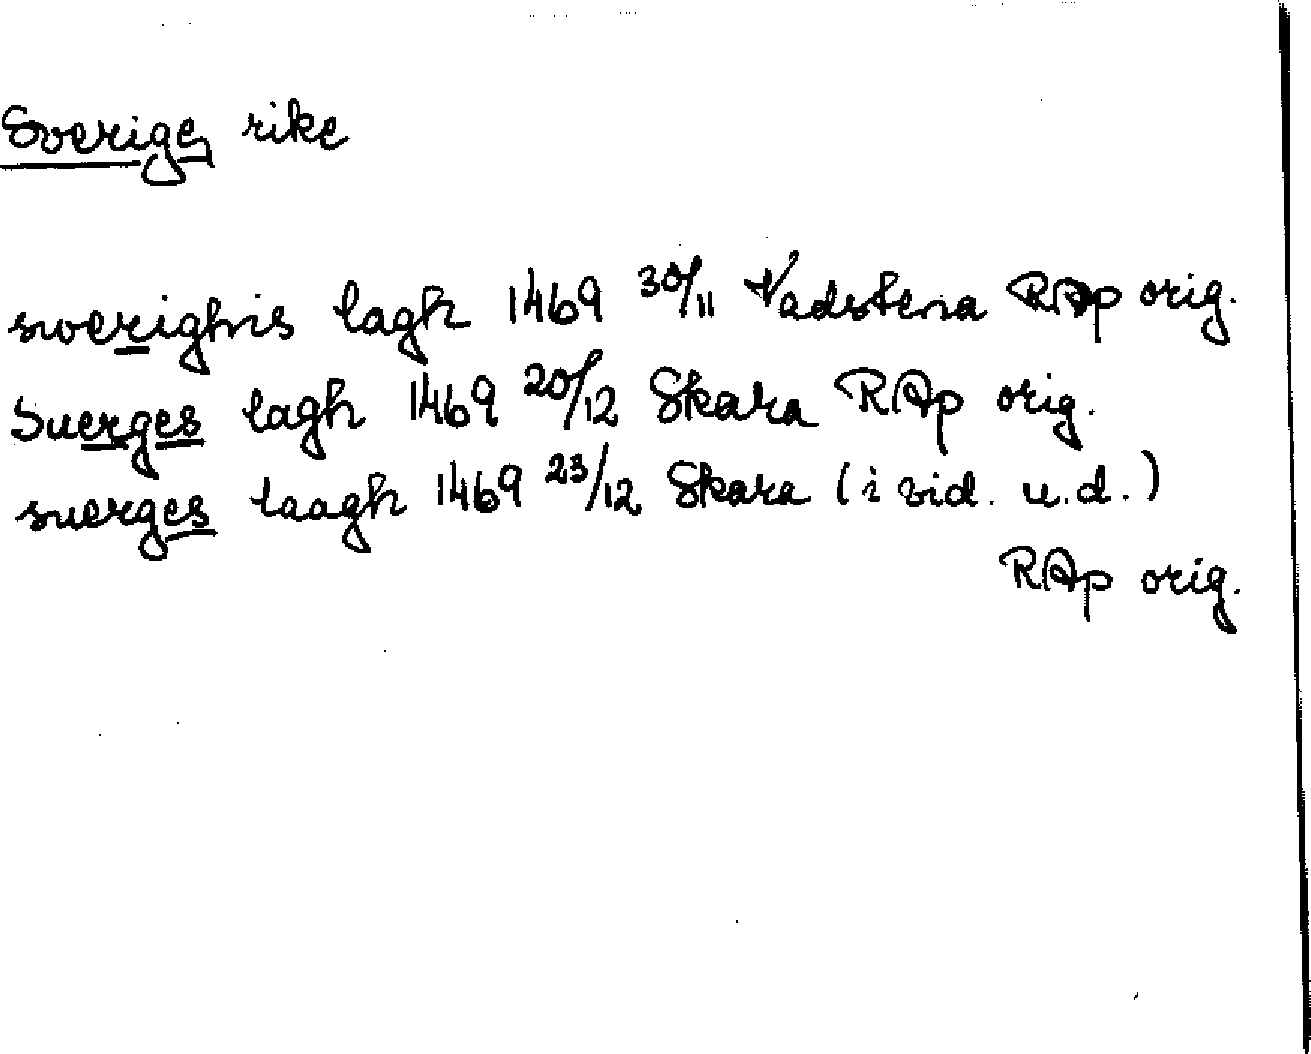 Sverige, rike
swerighis lagh 1469 30/11 Vadstena RAp orig.
Suerges lagh 1469 20/12 Skara RAp orig.
suerges laagh 1469 23/12 Skara (i vid. u.d.)
RAp orig.